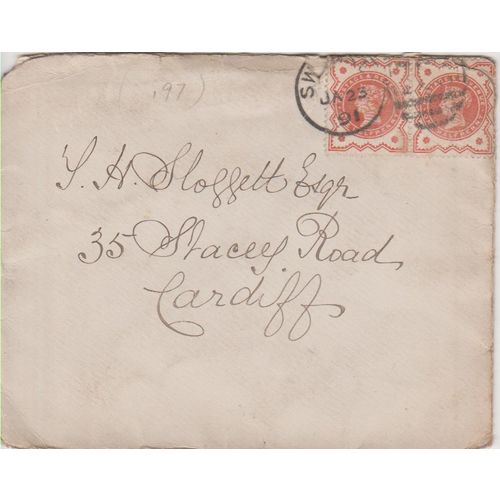 (197)
SW
JA 23
91
S. H. Sloggett Esqr
35 Stacey Road
Cardiff